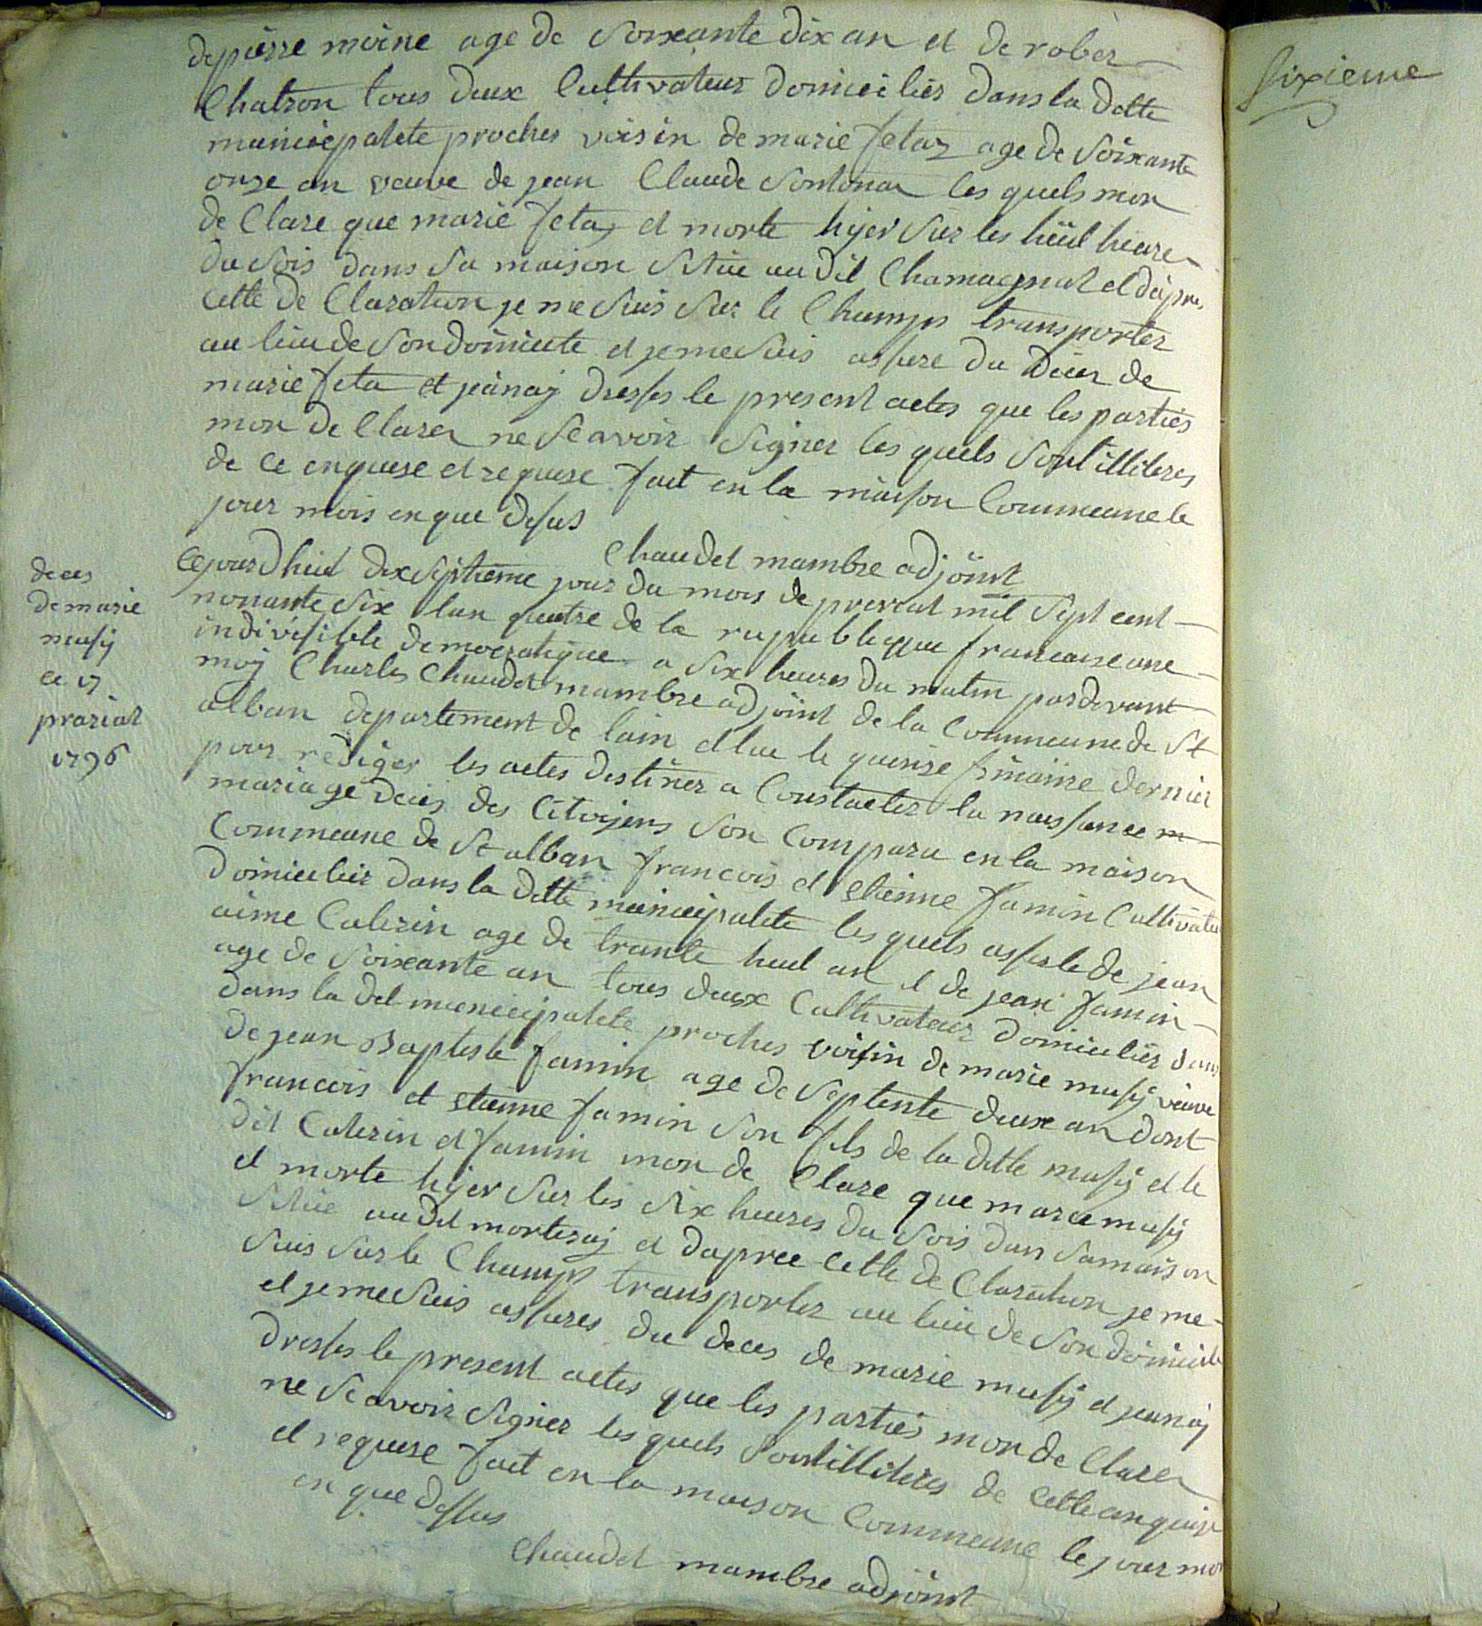 depierre moine age de Soixante dix an et de rober
Chatron tous deux Cultivateur domicilies dans la ditte
municipalete proches voisin de marie fetaz age de Soixante
onze an veuve de jean Claude les quels mon
de Clare que marie fetaz et morte hyer Sur les huit heure
du Soir dans Sa maison Situe au dit Chamagnat et dapres
cette de Claration je me Suis Sur le Champs transporter
au lieu de Son domicile et je me Suis assure du Deces de
marie feta et jeanay dresses le present actes que les parties
mon de Clarer ne Scavoir Signer les quels Sont illiteres
de ce enquere et requere fait en la maison Commeune le
jour mois en que desus
Chaudet mambre adjoint
Cejourdhuit dix Septieme jour du mois de prereal mil Sept cent
nonante Six lan quatre de la republique francaise une
indivisible democratique a Six heures du matin pardevant
moy Charles Chaudet mambre adjoint de la Commeune de St
alban departement de lain elue le quinze frimaire dernier
pour rediger les actes destiner a Constater la naissance m
mariage deces des Citoyens Son Comparu en la maison
Commeune de St alban francois et etienne famin Cultivateur
domicilier dans la ditte municipalite les quels assiste de jean
aime Calezin age de trante huit an et de jean famin
age de Soixante an tous deux Cultivateur domicilier dans
dans la dit municipalete proches voisin de marie musy veuve
de jean Baptiste famin age de Septente deux an dont
francois et etienne famin Son fils de la ditte musy et le
dit Calezin et famin mon de Clare que marie musy
et morte hyer Sur les Six heures du Soir dans Samaison
Situe au dit morteray et dapree cette de Claration je me
Suis Sur le Champs transporter au lieu de Son domicile
et je me Suis assures du deces de marie musy et jeanay
dresses le present actes que les parties mon de Clarer
ne Scavoir Signer les quels Sont illiteres de cette anquere
et requere fait en la maison Commeune le jour mois
en que dessus
Chaudet mambre adjoint
deces
de marie
musy
ce 17
prarial
1796
Sixieme